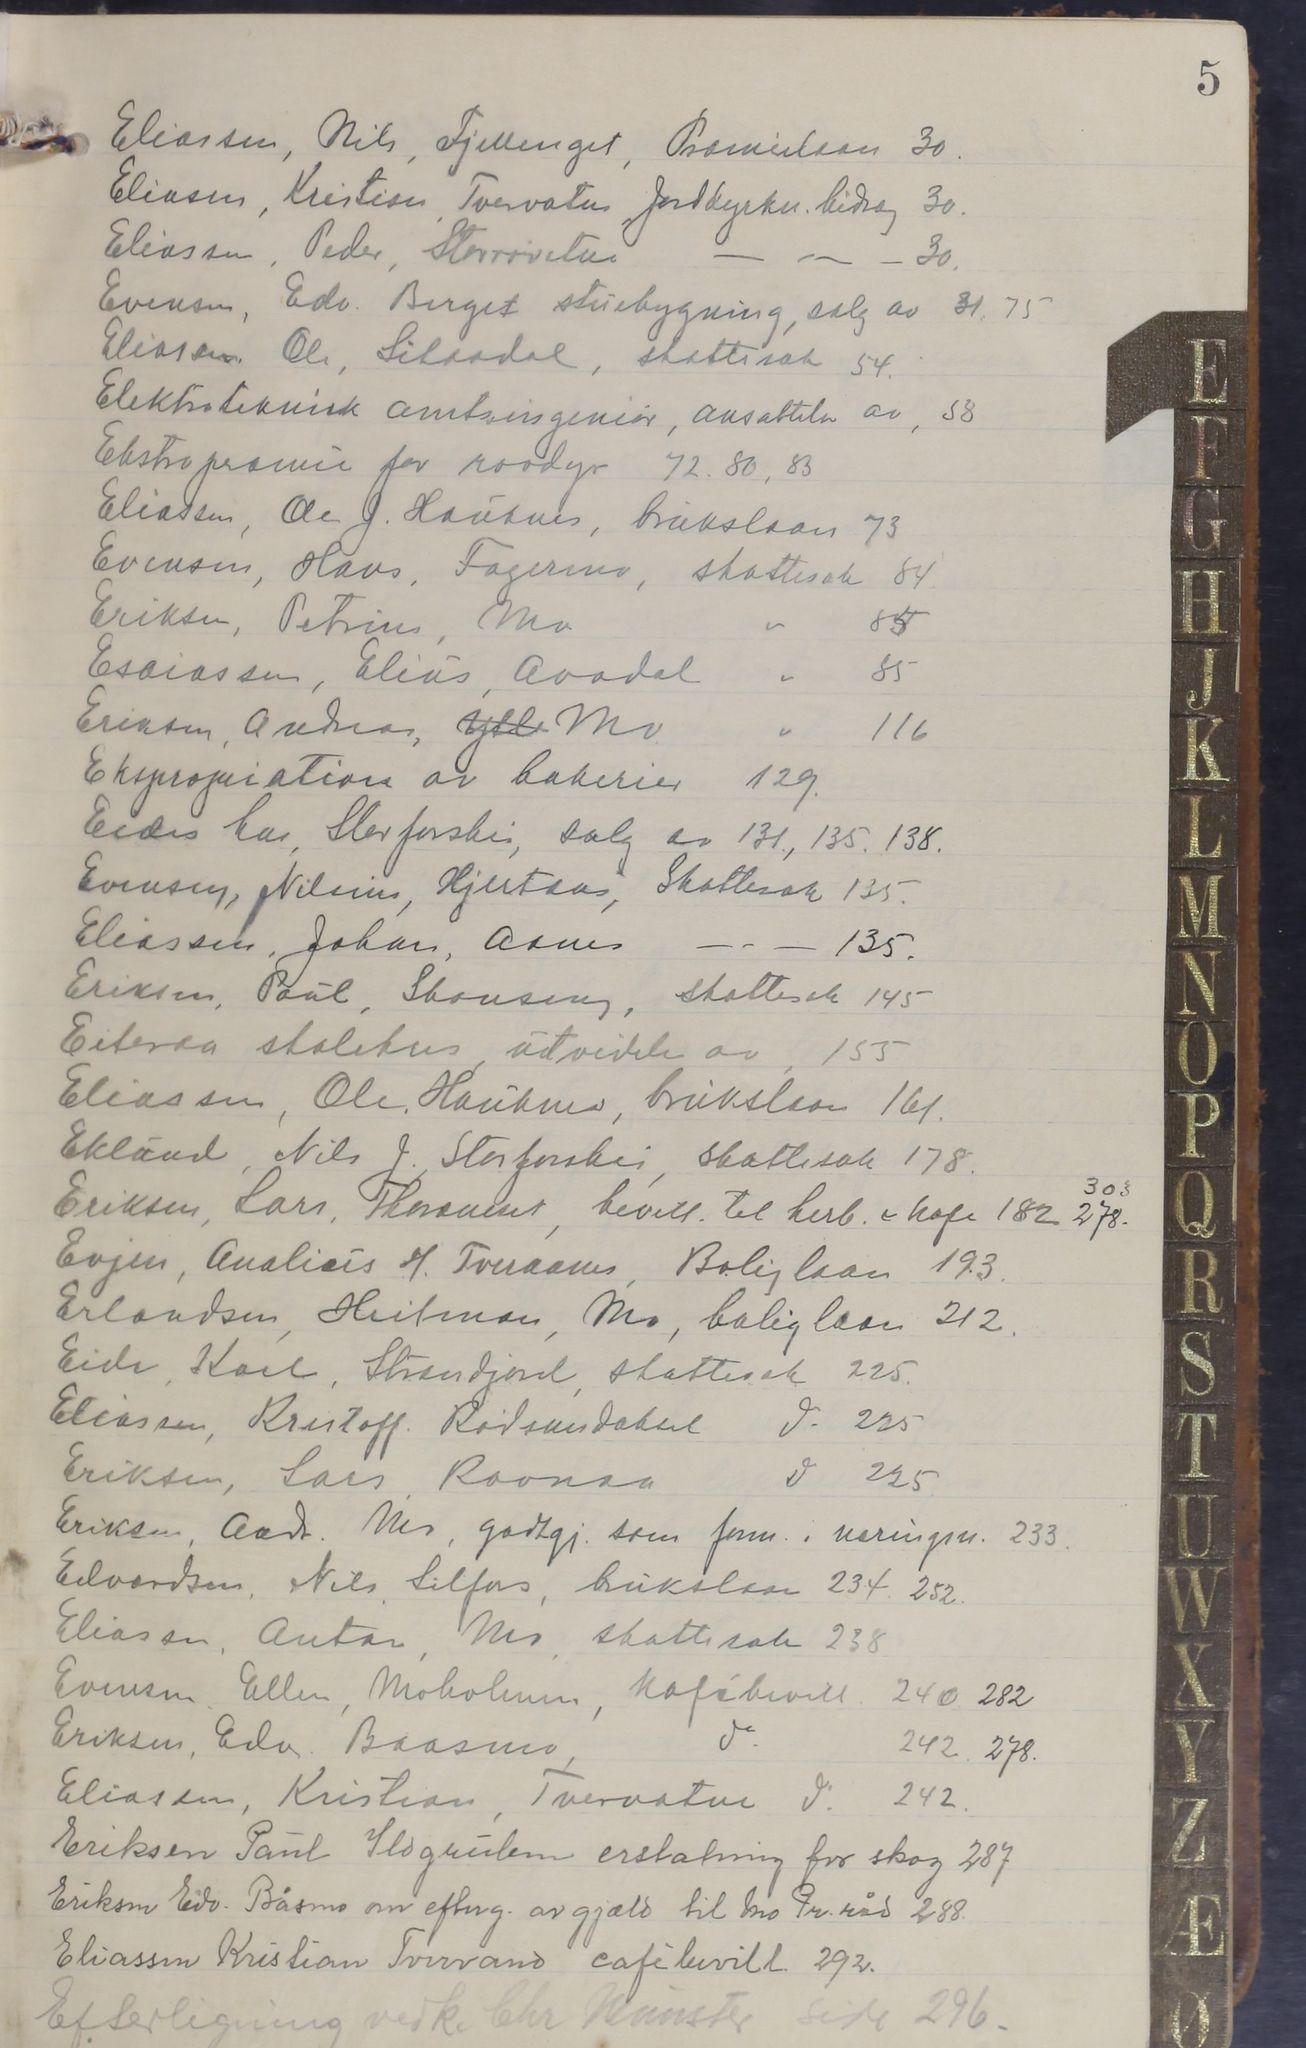 5
Eliassen, Nils, Fjellenget, Præmielaan 30.
Eliasen, Kristian, Tvervatne Jorddyrkn. bidrag 30.
Eliassen, Peder, Storrøvatne — — — 30.
Evensen, Edv. Berget stuebygning, salg av 31. 75
Eliassen Ole, Litlaadal, skattesak 54.
Elektroteknisk amtsingeniør, ansættelse av, 58
Ekstrapræmie for rovdyr 72. 80, 83
Eliassen, Ole J. Hauknes, brukslaan 73
Evensen, Hans, Fagermo, skattesak 84
Eriksen, Petrine, Mo " 85
Esaiassen, Elius, Avadal " 85
Eriksen, Andreas, Mo " 116
Ekspropriation av bakerier 129.
Eides hus, Storforshei, salg av 131, 135. 138.
Evensen, Nilsius, Hjertaas, Skattesak 135.
Eliassen, Johan, Aanes — " — 135.
Eriksen, Paul, Skonseng, skattesak 145
Eiteraa skolehus, utvidelse av 155
Eliassen, Ole, Hauknes, brukslaan 161.
Eklund, Nils J. Storforshei, skattesak 178.
303
Eriksen, Lars, Thoraneset, bevill. til herb. & kafe 182 278.
Evjen, Analius H. Tveraanes, Boliglaan 193.
Erlandsen, Heitman, Mo, boliglaan 212.
Eide, Karl, Strandjord, skattesak 225.
Eliassen, Kristoff. do 225
Eriksen, Lars, Ravnaa do 225
Eriksen, Andr. Mo, godtgj. som form. i næringsn. 233.
Edvardsen, Nils, Selfors, brukslaan 234. 252.
Eliassen, Anton, Mo, skattesak 238
Evensen, Ellen, Moholmen, Kafébevill. 240. 282
Eriksen, Edv. Baasmo, do. 242. 278.
Eliassen, Kristian, Tvervatne do. 242.
Eriksen Paul Ildgrulem erstatning for skog 287
Eriksen Edv. Båsmo om efterg. av gjæld til Mo Pr.råd 288.
Eliassen Kristian Tvervand cafébevill. 292.
Efterligning vedk. Chr Münster side 296.
E
F
G
H
J
K
L
M
N
O
P
Q
R
S
T
U
W
X
Y
Z
Æ
Ø